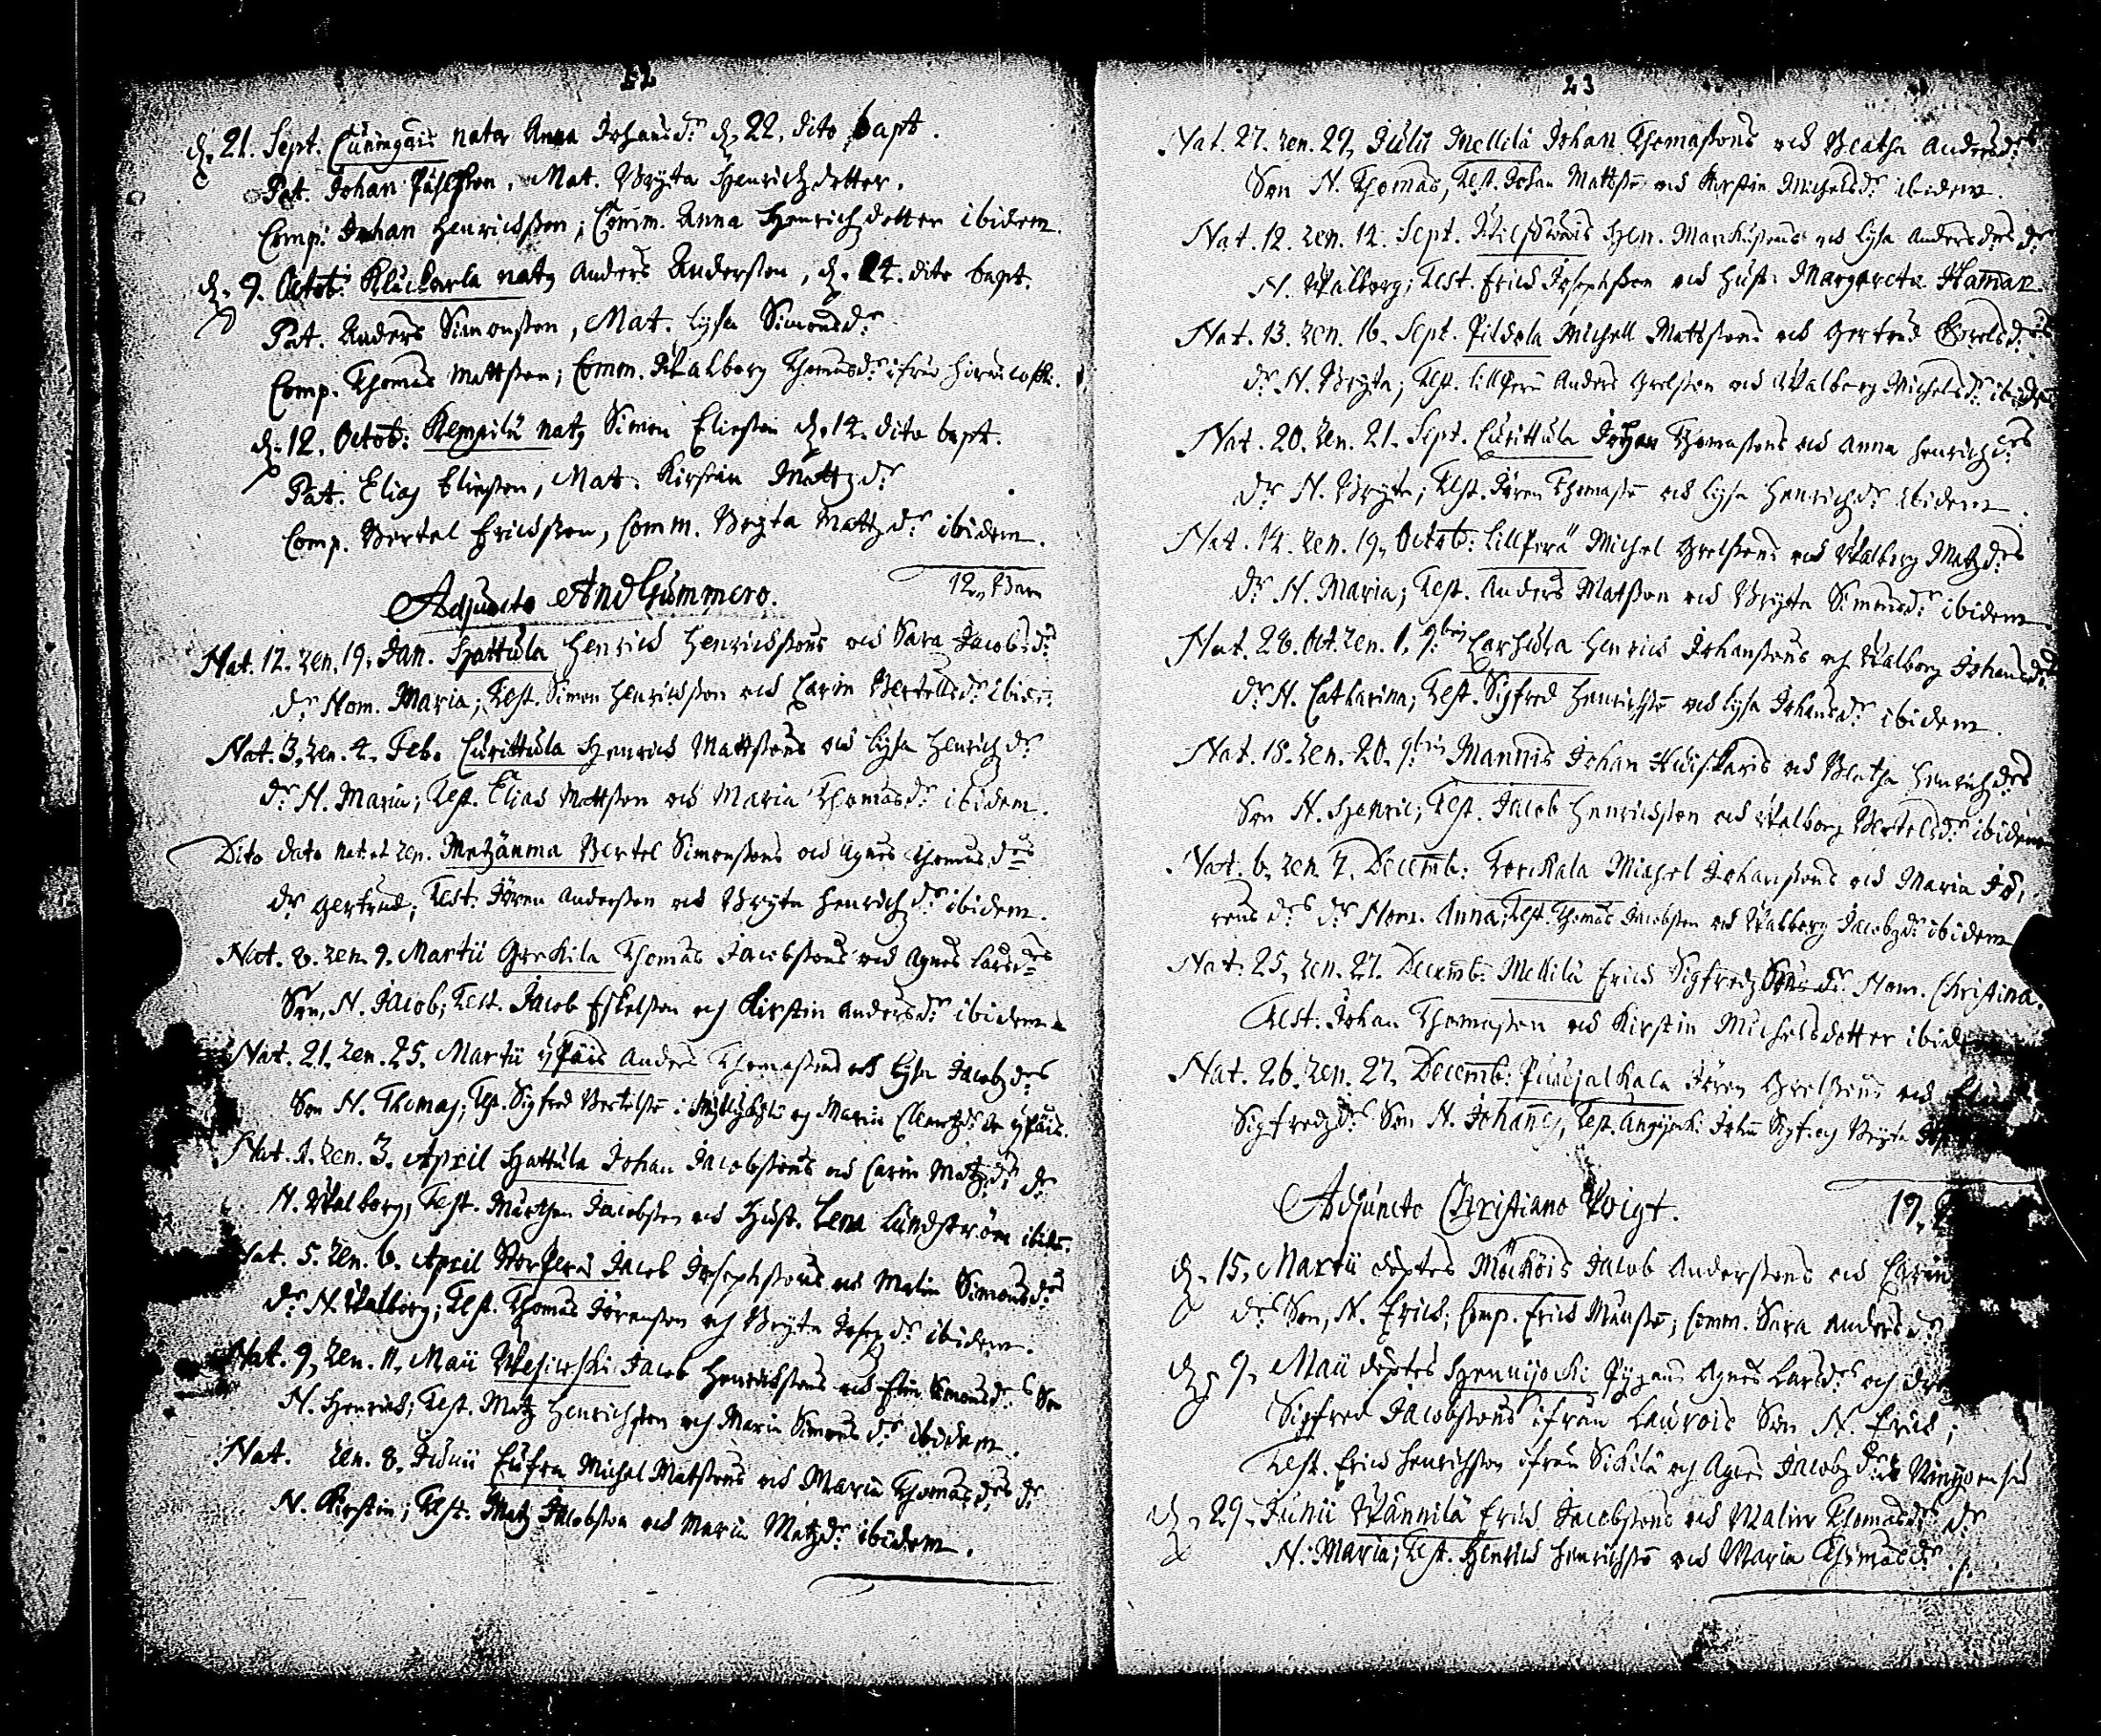 22
d. 21. Sept. Cuningais nata Anna Johansdr d. 22. dito bapt.
Pat. Johan Påhlsson, Mat. Bryta Henrichzdotter.
Comp. Johan Henricksson; Comm. Anna Henrichzdotter ibidem.
d. 9. Octob: natg Anders Andersson, d. 14. dito bapt.
Pat. Anders Simonsson, Mat. Lysa Simonsdr
Comp. Thomas Mattsson; Comm. Walborg Thomasdr ifrån
d. 12. Octob: Kempilä natg Simon Eliesson d. 14. dito bapt.
Pat. Elias Eliesson, Mat. Kirstin Mattzdr
Comp. Bertel Ericksson, Comm. Bryta Mattzdr ibidem.
12 Barn
Adjuncto And Gummero.
Nat. 12. ren. 19. Jan. Hattula Henrick Henrickssons ock Sara Jacobsdrs
dr Nom. Maria; Test. Simon Henricksson ock Carin Bertelsdr ibid:
Nat. 3. ren. 4. Feb. Curittula Henrick Mattssons ock Lysa Henrichzdrs
dr N. Maria; Test. Elias Mattsson ock Maria Thomasdr ibidem.
Dito dato nat. et ren. Metzänma Bertel Simonssons ock Agnes Thomasdrs
dr Gertrud; Test: Jören Andersson ock Bryta Henrichzdr ibidem.
Nat. 8. ren. 9. Martii Thomas Jacobssons ock Agnes Larsdrs
Son, N. Jacob; Test. Jacob Eskelsson och Kirstin Andersdr ibidem
Nat. 21. ren. 25. Martii ÿpäis Anders Thomassons ock Lysa Jacobzdrs
Son N. Thomas; Test. Sigfred Bertelsson i och Maria Clemetzdr
Nat. 2. ren. 3. April Hattula Johan Jacobssons ock Carin Matzdrs dr
N. Walborg, Test. Mårthen Jacobsson ock Hust. Lena Lundström ibid.
Nat. 5. ren. 6. April Storperä Jacob Josephssons ock Malin Simonsdrs
dr N. Walborg; Test. Thomas Jörensson och Bryta Josepzdr ibidem.
Nat. 9. ren. 11. Maii Jacob Henrickssons ock Elin Simonsdrs Son
N. Henrick; Test. Matz Henrichsson och Maria Simonsdr ibidem.
Nat. ren. 8. Junii Eufra Michel Matssons ock Maria Thomasdrs dr
N. Kirstin; Test. Matz Jacobsson ock Maria Matzdr ibidem.
23
Nat. 27. ren. 29. Julii Mellilä Johan Thomassons ock Beatha Andersdrs
Son N. Thomas, Test. Johan Mattsson ock Kirstin Michelsdr ibidem.
Nat. 12. ren. 14. Sept. Hen. Markussons ock Lysa Andersdrs dr
N. Walborg; Test. Erick Josephsson ock Hust. Margareta Haman
Nat. 13. ren. 16. Sept. Pildola Michell Mattssons ock Gertrud Grelsdrs
dr N. Bryta; Test. Lillperä Anders Grelsson ock Walborg Michelsdr ibidem
Nat. 20. ren. 21. Sept. Curittula Johan Thomassons ock Anna Henrichzdrs
dr N. Bryta; Test. Jören Thomasson ock Lysa Henrichzdr ibidem.
Nat. 14. ren. 19. Octob: Lillperä Michel Grelssons ock Walborg Matzdrs
dr N. Maria; Test. Anders Matsson ock Bryta Simonsdr ibidem
Nat. 26. Oct. ren. 1. 9bris Carhula Henrick Johanssons och Walborg Johansdrs
dr N. Catharina; Test. Sigfred Henrichsson ock Lysa Johansdr ibidem.
Nat. 18. ren. 20. 9bris Mannis Johan ock Beatha Henrichzdrs
Son N. Henric; Test. Jacob Henricksson ock Walborg Bertelsdr ibidem
Nat. 6. ren. 7. Decemb: Torckala Michel Johanssons ock Maria Jö-
rensdrs dr Nom. Anna; Test. Thomas Jacobsson ock Walborg Jacobzdr ibidem
Nat. 25. ren. 27. Decemb: Mellilä Erick Sigfredz Sons dr Nom. Christina.
Test. Johan Thomasson ock Kirstin Michelsdotter ibidem
Nat. 26. ren. 27. Decemb: Jören Grelssons ock
Sigfredzdrs Son N. Johannes, Test. Johan Sigf. och Bryta
Adjuncto Christiano Voigt.
19.
d. 15. Martii döptes Mäköis Jacob Anderssons ock Carin
drs Son, N. Erick; Comp. Erick Månsson; Comm. Sara Andersdr
d. 9. Maii döptes Hennijocki Pygans Agnes Larsdrs och
Sigfred Jacobssons ifrån Laurois Son N. Erick;
Test. Erick Henrichsson ifrån Sikilä och Agnes Jacobzdr
d. 29. Junii Wännilä Erick Jacobssons ock Malin Thomasdrs dr
N. Maria; Test. Henrick Henrichsson ock Maria Thomasdr